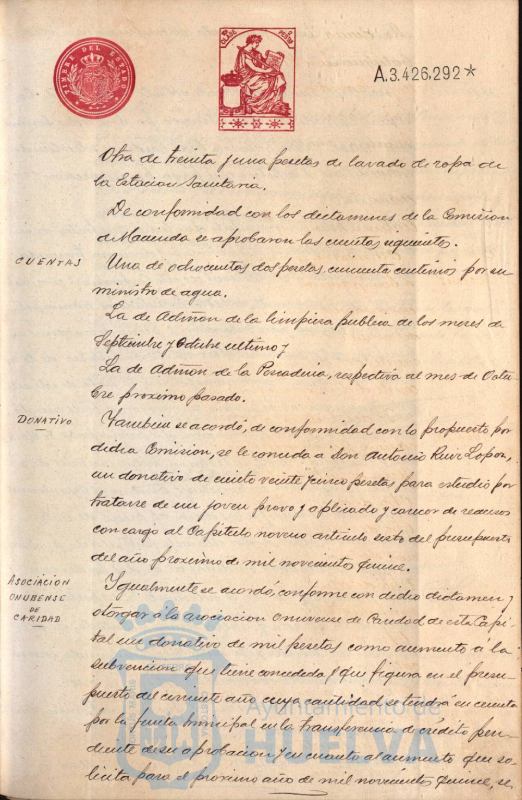 TIMBRE DEL ESTADO
A.3.426.292*
Otra de treinta y una pesetas de lavado de ropa de
la Estacion Sanitaria.
De conformidad con los dictamenes de la Comision
de Hacienda se aprobaron las cuentas siguientes.
CUENTAS
Una de ochocientas dos pesetas cincuenta centimos por su
ministro de agua.
La de Admon de la limpieza publica de los meses de
Septiembre y Octubre ultimo y
La de Admon de la Pescaderia, respectiva al mes de Octu
bre proximo pasado.
DONATIVO
Tambien se acordó, de conformidad con lo propuesto por
dicha Comision, se le conceda a Don Antonio Ruiz Lopez,
un donativo de ciento veinte y cinco pesetas para estudio por
tratarse de un joven probo y aplicado y carecer de recursos
con cargo al Capitulo noveno articulo sesto del presupuesto
del año proximo de mil novecientos quince.
ASOCIACION
ONUBENSE
DE
CARIDAD
Igualmente se acordó, conforme con dicho dictamen y
otorgar á la asociacion Onuvense de Caridad de esta Capi
tal un donativo de mil pesetas como aumento a la
subvencion que tiene concedida y que figura en el presu
puesto del corriente año cuya cantidad se tendrá en cuenta
por la Junta Municipal en la transferencia de crédito pen
diente de su aprobacion y en cuanto al aumento que so
licita para el proximo año de mil novecientos quince, se
Ayuntamiento de
HUELVA